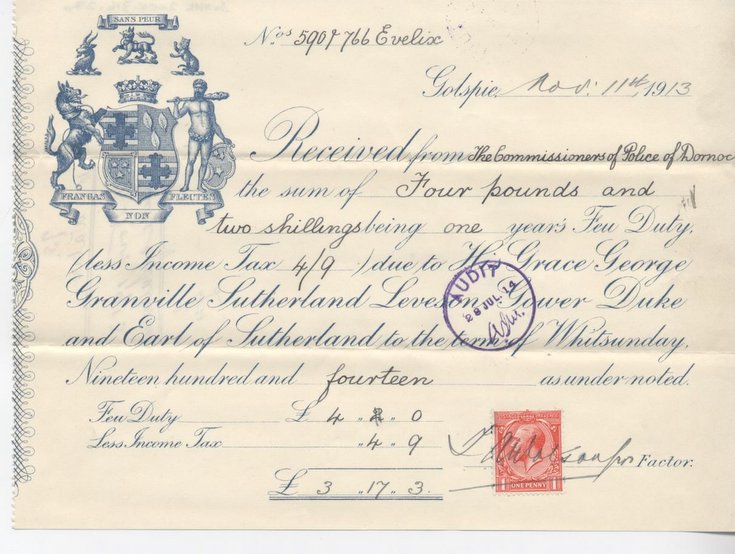 SANS PEUR
FRANGAS NON FLECTES
Nos 590 & 766 Evelix
Golspie, Nov: 11th, 1913
Received from The Commissioners of Police of Dornoc
the sum of Four pounds and
two shillings being one year's Feu Duty,
(less Income Tax 4/9) due to His Grace George
Granville Sutherland Leveson Gower Duke
and Earl of Sutherland to the term of Whitsunday,
Nineteen hundred and fourteen as under noted.
AUDIT
28 JUL. 14
Feu Duty £ 4 " 2 " 0
Less Income Tax " 4 " 9
Factor.
£ 3 " 17 " 3
ONE PENNY